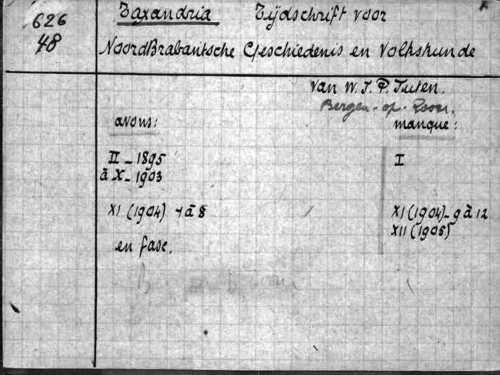 626
48
Taxandria Tijdschrift voor
NoordBrabantsche Geschiedenis en Volkskunde
van W. J. P. Juten.
Bergen-op-Zoom.
avons:
manque:
II - 1895
à X - 1903
I
XI (1904) 1 à 8
XI (1904) - 9 à 12
XII (1905)
en fasc.